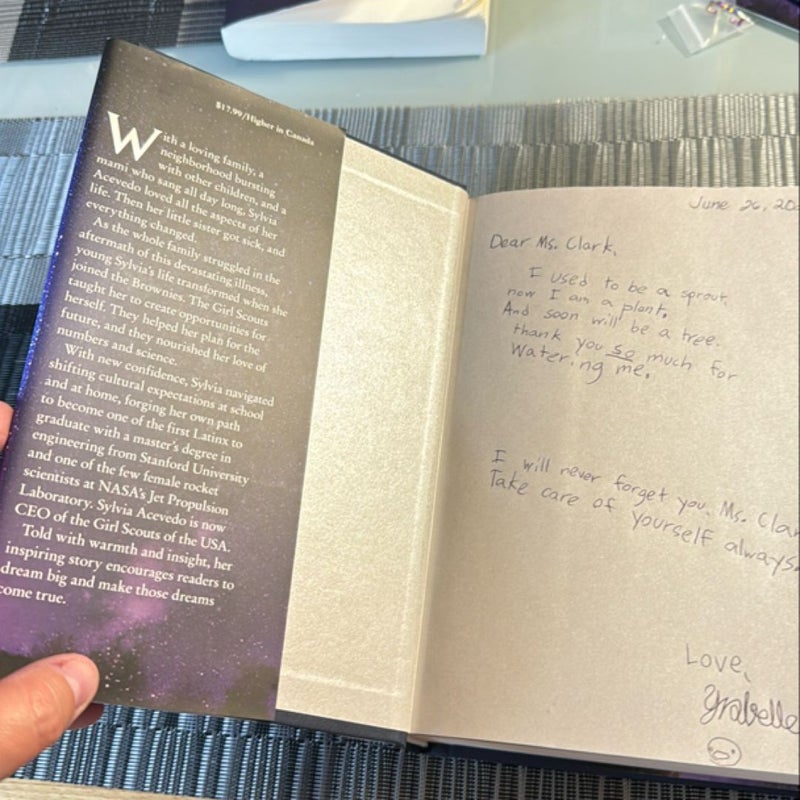 $17.99/Higher in Canada
With a loving family, a
neighborhood bursting
with other children, and a
mami who sang all day long, Sylvia
Acevedo loved all the aspects of her
life. Then her little sister got sick, and
everything changed.
As the whole family struggled in the
aftermath of this devastating illness,
young Sylvia's life transformed when she
joined the Brownies. The Girl Scouts
taught her to create opportunities for
herself. They helped her plan for the
future, and they nourished her love of
numbers and science.
With new confidence, Sylvia navigated
shifting cultural expectations at school
and at home, forging her own path
to become one of the first Latinx to
graduate with a master's degree in
engineering from Stanford University
and one of the few female rocket
scientists at NASA's Jet Propulsion
Laboratory. Sylvia Acevedo is now
CEO of the Girl Scouts of the USA.
Told with warmth and insight, her
inspiring story encourages readers to
dream big and make those dreams
come true.
June 26, 20
Dear Ms. Clark,
I used to be a sprout,
now I am a plant,
And soon will be a tree.
thank you so much for
watering me.
I will never forget you. Ms. Clar
Take care of yourself always.
Love,
Yrabelle